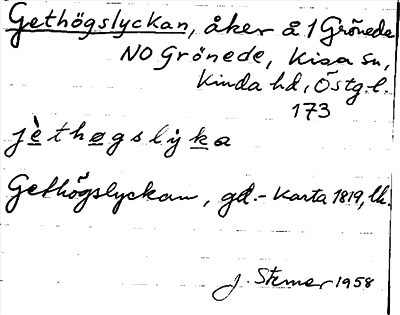 Gethögslyckan, åker å 1 Grönede
NO Grönede, Kisa sn,
Kinda hd, Östg.l.
173
jèthøgslyka
Gethögslyckan, gd.- Karta 1819, lk.
J. Stemar 1958